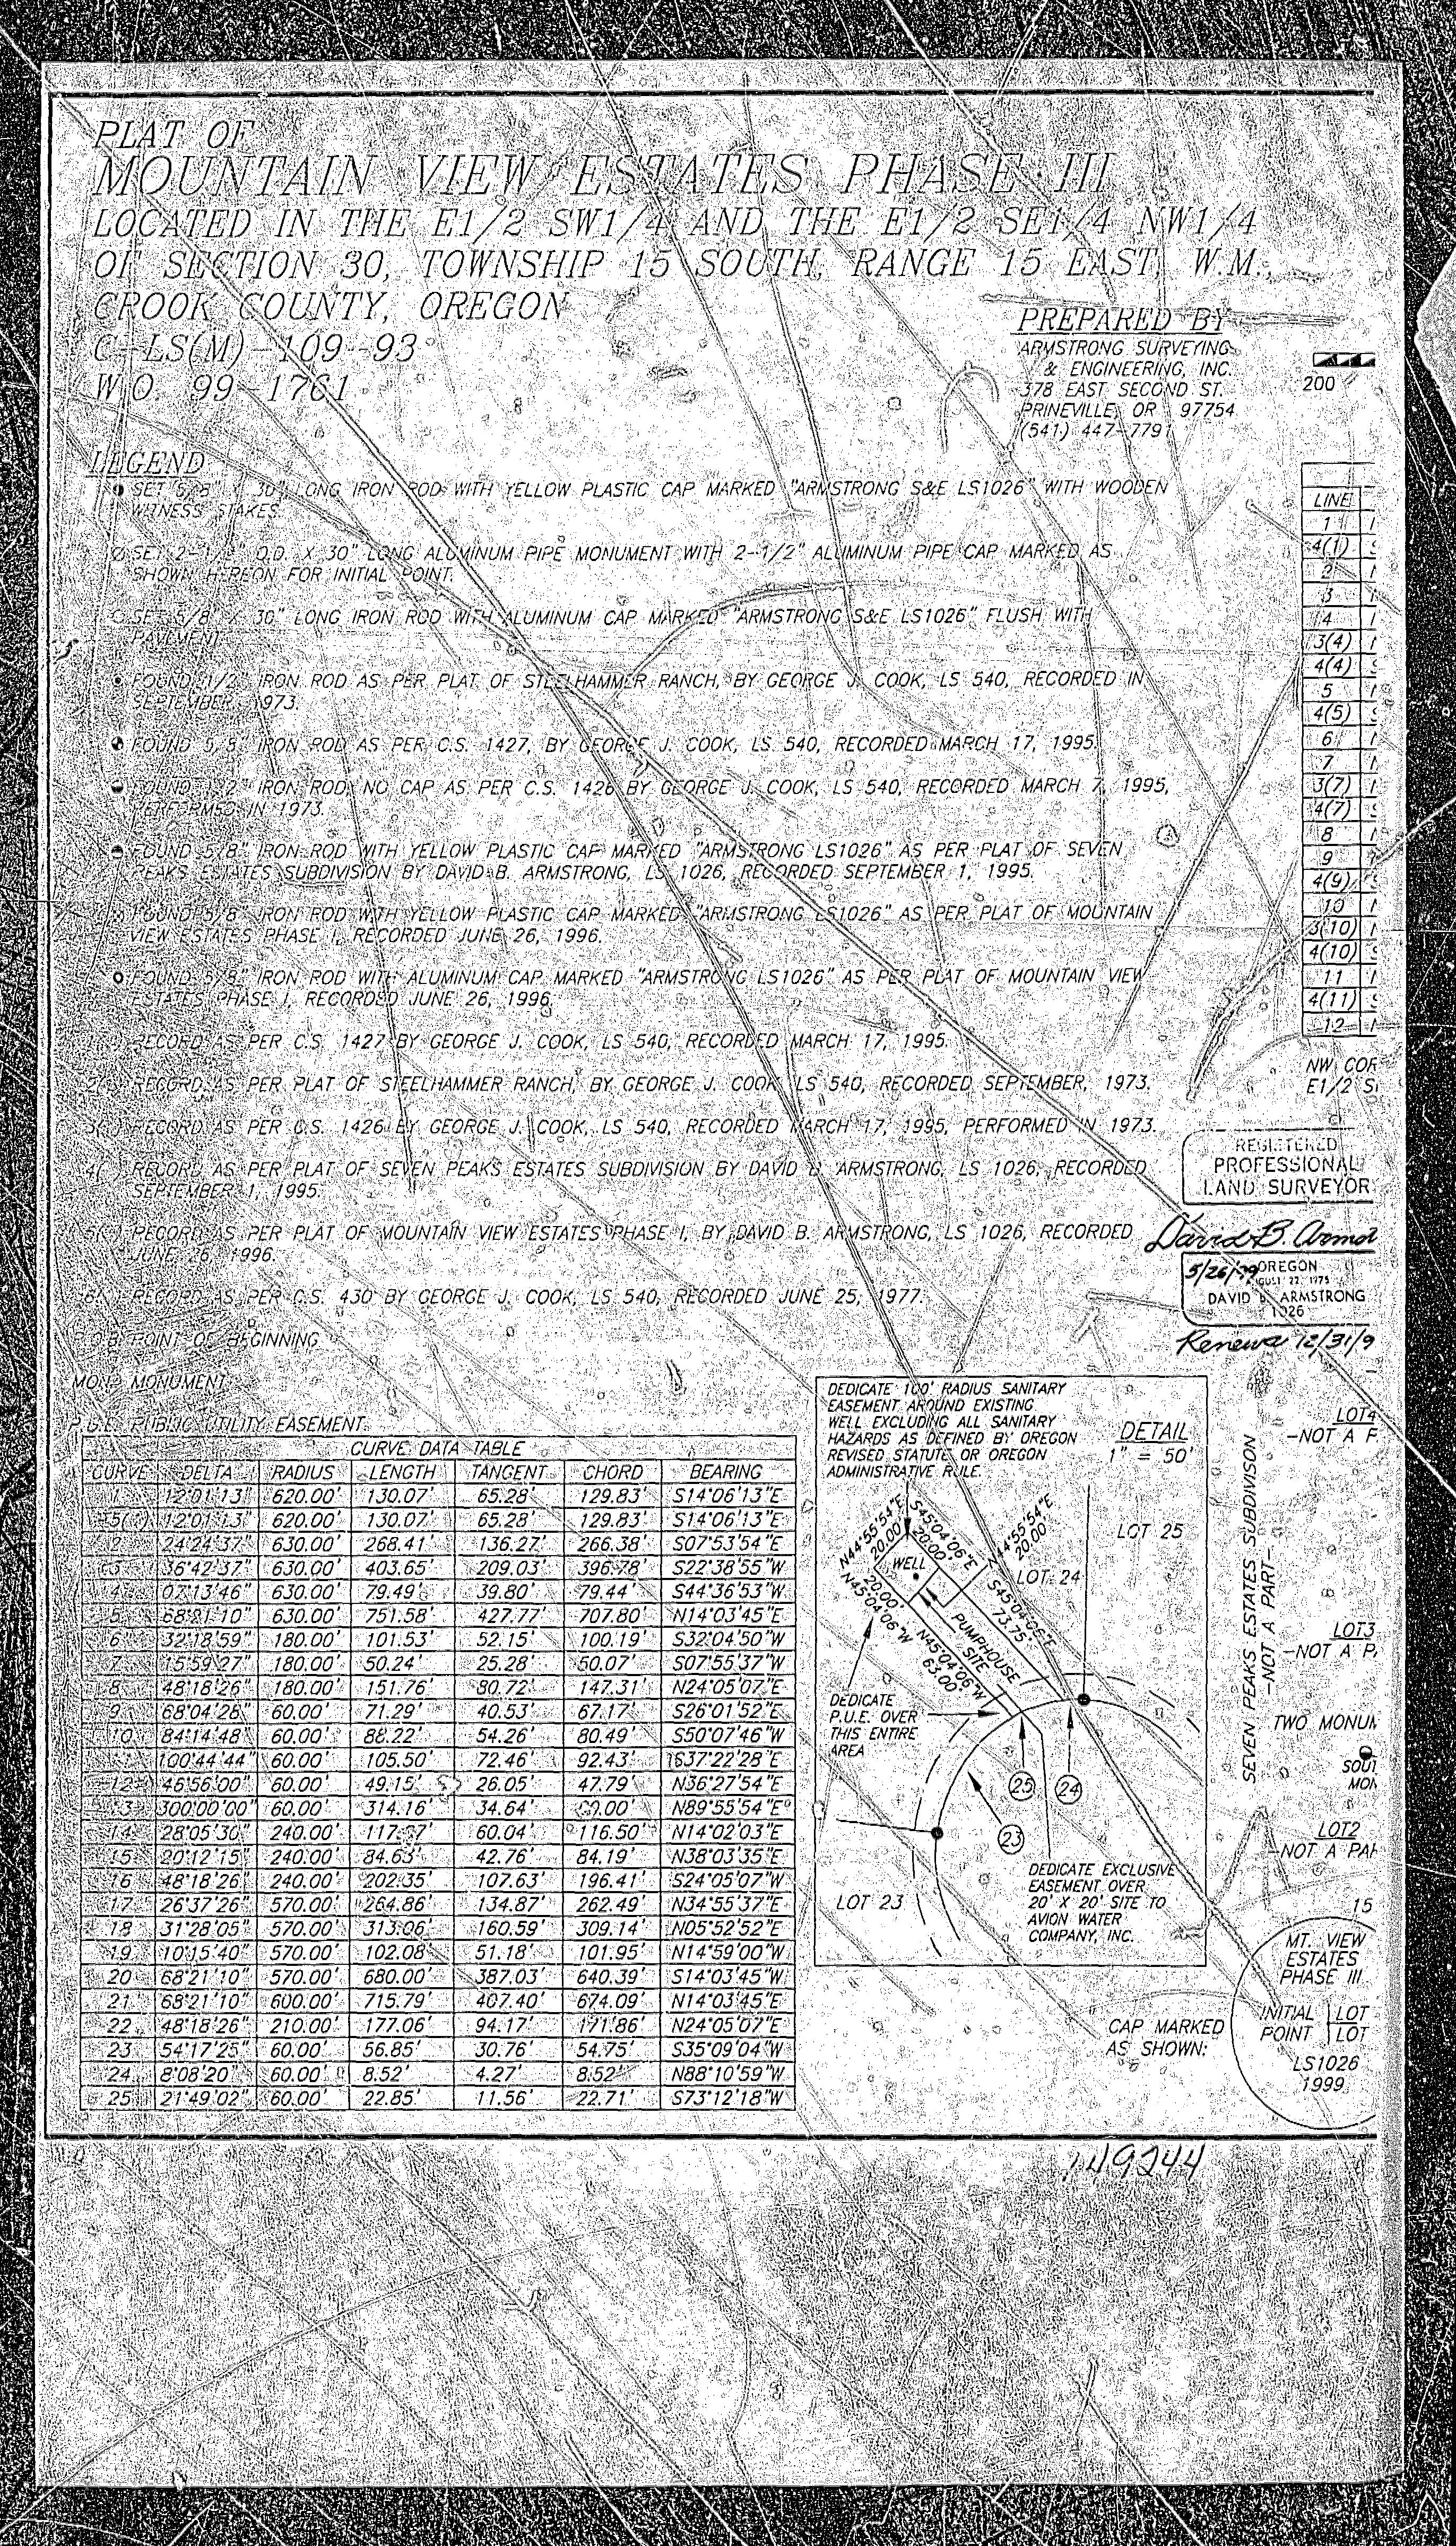 PLAT OF
MOUNTAIN VIEW ESTATES PHASE III
LOCATED IN THE E1/2 SW1/4 AND THE E1/2 SE1/4 NW1/4
OF SECTION 30, TOWNSHIP 15 SOUTH, RANGE 15 EAST, W.M.,
CROOK COUNTY, OREGON
C-LS(M)-109-93
W.O. 99-1761
PREPARED BY
ARMSTRONG SURVEYING
& ENGINEERING, INC.
378 EAST SECOND ST.
PRINEVILLE, OR 97754
(541) 447-7791
200
LEGEND
SET 5/8" X 30" LONG IRON ROD WITH YELLOW PLASTIC CAP MARKED "ARMSTRONG S&E LS1026" WITH WOODEN
WITNESS STAKES.
SET 2-1/2" O.D. X 30" LONG ALUMINUM PIPE MONUMENT WITH 2-1/2" ALUMINUM PIPE CAP MARKED AS
SHOWN HEREON FOR INITIAL POINT.
SET 5/8" X 30" LONG IRON ROD WITH ALUMINUM CAP MARKED "ARMSTRONG S&E LS1026" FLUSH WITH
PAVEMENT.
FOUND 1/2" IRON ROD AS PER PLAT OF STEELHAMMER RANCH, BY GEORGE J. COOK, LS 540, RECORDED IN
SEPTEMBER, 1973.
FOUND 5/8" IRON ROD AS PER C.S. 1427, BY GEORGE J. COOK, LS 540, RECORDED MARCH 17, 1995.
FOUND 1/2" IRON ROD, NO CAP AS PER C.S. 1426 BY GEORGE J. COOK, LS 540, RECORDED MARCH 7, 1995,
PERFORMED IN 1973.
FOUND 5/8" IRON ROD WITH YELLOW PLASTIC CAP MARKED "ARMSTRONG LS1026" AS PER PLAT OF SEVEN
PEAKS ESTATES SUBDIVISION BY DAVID B. ARMSTRONG, LS 1026, RECORDED SEPTEMBER 1, 1995.
FOUND 5/8" IRON ROD WITH YELLOW PLASTIC CAP MARKED "ARMSTRONG LS1026" AS PER PLAT OF MOUNTAIN
VIEW ESTATES PHASE I, RECORDED JUNE 26, 1996.
FOUND 5/8" IRON ROD WITH ALUMINUM CAP MARKED "ARMSTRONG LS1026" AS PER PLAT OF MOUNTAIN VIEW
ESTATES PHASE I, RECORDED JUNE 26, 1996.
RECORD AS PER C.S. 1427 BY GEORGE J. COOK, LS 540, RECORDED MARCH 17, 1995.
2( ) RECORD AS PER PLAT OF STEELHAMMER RANCH, BY GEORGE J. COOK, LS 540, RECORDED SEPTEMBER, 1973.
3( ) RECORD AS PER C.S. 1426 BY GEORGE J. COOK, LS 540, RECORDED MARCH 17, 1995, PERFORMED IN 1973.
4( ) RECORD AS PER PLAT OF SEVEN PEAKS ESTATES SUBDIVISION BY DAVID B. ARMSTRONG, LS 1026, RECORDED
SEPTEMBER 1, 1995.
5( ) RECORD AS PER PLAT OF MOUNTAIN VIEW ESTATES PHASE I, BY DAVID B. ARMSTRONG, LS 1026, RECORDED
JUNE 26, 1996.
6( ) RECORD AS PER C.S. 430 BY GEORGE J. COOK, LS 540, RECORDED JUNE 25, 1977.
P.O.B. POINT OF BEGINNING
MON. MONUMENT
P.U.E. PUBLIC UTILITY EASEMENT
LINE
1
4(1)
2
3
4
3(4)
4(4)
5
4(5)
6
7
3(7)
4(7)
8
9
4(9)
10
3(10)
4(10)
11
4(11)
12
NW COR
E1/2 S
REGISTERED
PROFESSIONAL
LAND SURVEYOR
David B. Armst
5/26/99 OREGON
AUGUST 22, 1975
DAVID B. ARMSTRONG
1026
Renewal 12/31/9
CURVE DATA TABLE
CURVE DELTA RADIUS LENGTH TANGENT CHORD BEARING
1 12°01'13" 620.00' 130.07' 65.28' 129.83' S14°06'13"E
5(1) 12°01'13" 620.00' 130.07' 65.28' 129.83' S14°06'13"E
2 24°24'37" 630.00' 268.41' 136.27' 266.38' S07°53'54"E
3 36°42'37" 630.00' 403.65' 209.03' 396.78' S22°38'55"W
4 07°13'46" 630.00' 79.49' 39.80' 79.44' S44°36'53"W
5 68°21'10" 630.00' 751.58' 427.77' 707.80' N14°03'45"E
6 32°18'59" 180.00' 101.53' 52.15' 100.19' S32°04'50"W
7 15°59'27" 180.00' 50.24' 25.28' 50.07' S07°55'37"W
8 48°18'26" 180.00' 151.76' 80.72' 147.31' N24°05'07"E
9 68°04'28" 60.00' 71.29' 40.53' 67.17' S26°01'52"E
10 84°14'48" 60.00' 88.22' 54.26' 80.49' S50°07'46"W
100°44'44" 60.00' 105.50' 72.46' 92.43' S37°22'28"E
12 46°56'00" 60.00' 49.15' 26.05' 47.79' N36°27'54"E
13 300°00'00" 60.00' 314.16' 34.64' 60.00' N89°55'54"E
14 28°05'30" 240.00' 117.67' 60.04' 116.50' N14°02'03"E
15 20°12'15" 240.00' 84.63' 42.76' 84.19' N38°03'35"E
16 48°18'26" 240.00' 202.35' 107.63' 196.41' S24°05'07"W
17 26°37'26" 570.00' 264.86' 134.87' 262.49' N34°55'37"E
18 31°28'05" 570.00' 313.06' 160.59' 309.14' N05°52'52"E
19 10°15'40" 570.00' 102.08' 51.18' 101.95' N14°59'00"W
20 68°21'10" 570.00' 680.00' 387.03' 640.39' S14°03'45"W
21 68°21'10" 600.00' 715.79' 407.40' 674.09' N14°03'45"E
22 48°18'26" 210.00' 177.06' 94.17' 171.86' N24°05'07"E
23 54°17'25" 60.00' 56.85' 30.76' 54.75' S35°09'04"W
24 8°08'20" 60.00' 8.52' 4.27' 8.52' N88°10'59"W
25 21°49'02" 60.00' 22.85' 11.56' 22.71' S73°12'18"W
DEDICATE 100' RADIUS SANITARY
EASEMENT AROUND EXISTING
WELL EXCLUDING ALL SANITARY
HAZARDS AS DEFINED BY OREGON
REVISED STATUTE OR OREGON
ADMINISTRATIVE RULE.
DETAIL
1" = 50'
N44°55'54"E
20.00'
S45°04'06"E
20.00'
N44°55'54"E
20.00'
LOT 25
LOT 24
WELL
20.00'
N45°04'06"W
S45°04'06"E
73.75'
PUMPHOUSE
SITE
N45°04'06"W
63.00'
DEDICATE
P.U.E. OVER
THIS ENTIRE
AREA
25
24
23
LOT 23
DEDICATE EXCLUSIVE
EASEMENT OVER
20' X 20' SITE TO
AVION WATER
COMPANY, INC.
SEVEN PEAKS ESTATES SUBDIVISON
-NOT A PART-
LOT4
-NOT A P
LOT3
-NOT A PA
TWO MONUM
SOUT
MON
LOT2
-NOT A PAR
15
MT. VIEW
ESTATES
PHASE III
INITIAL
POINT
LOT
LOT
LS1026
1999
CAP MARKED
AS SHOWN:
149244